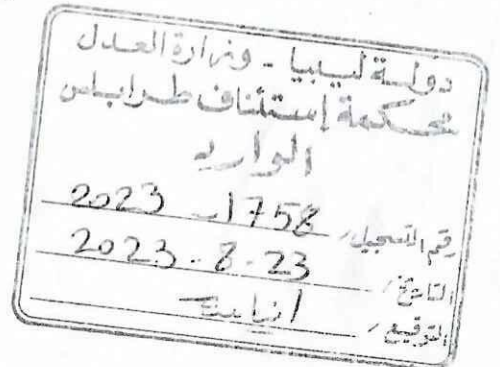 دولة ليبيا - وزارة العدل
محكمة إستئناف طرابلس
الوارد
رقم التسجيل / 1758 - 2023
التاريخ / 23 - 8 - 2023
التوقيع /